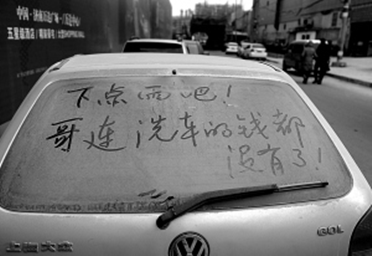 下点雨吧！
哥连洗车的钱都
没有了！
GOL
上海大众